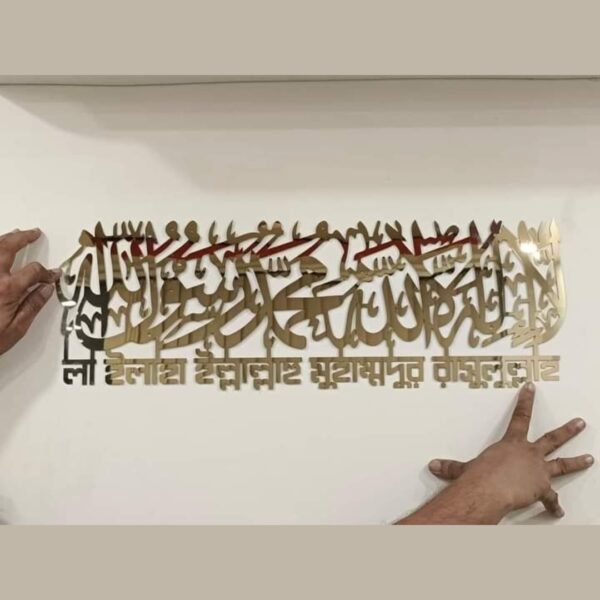 لا إله إلا الله محمد رسول الله
লা ইলাহা ইল্লাল্লাহু মুহাম্মাদুর রাসুলুল্লাহ